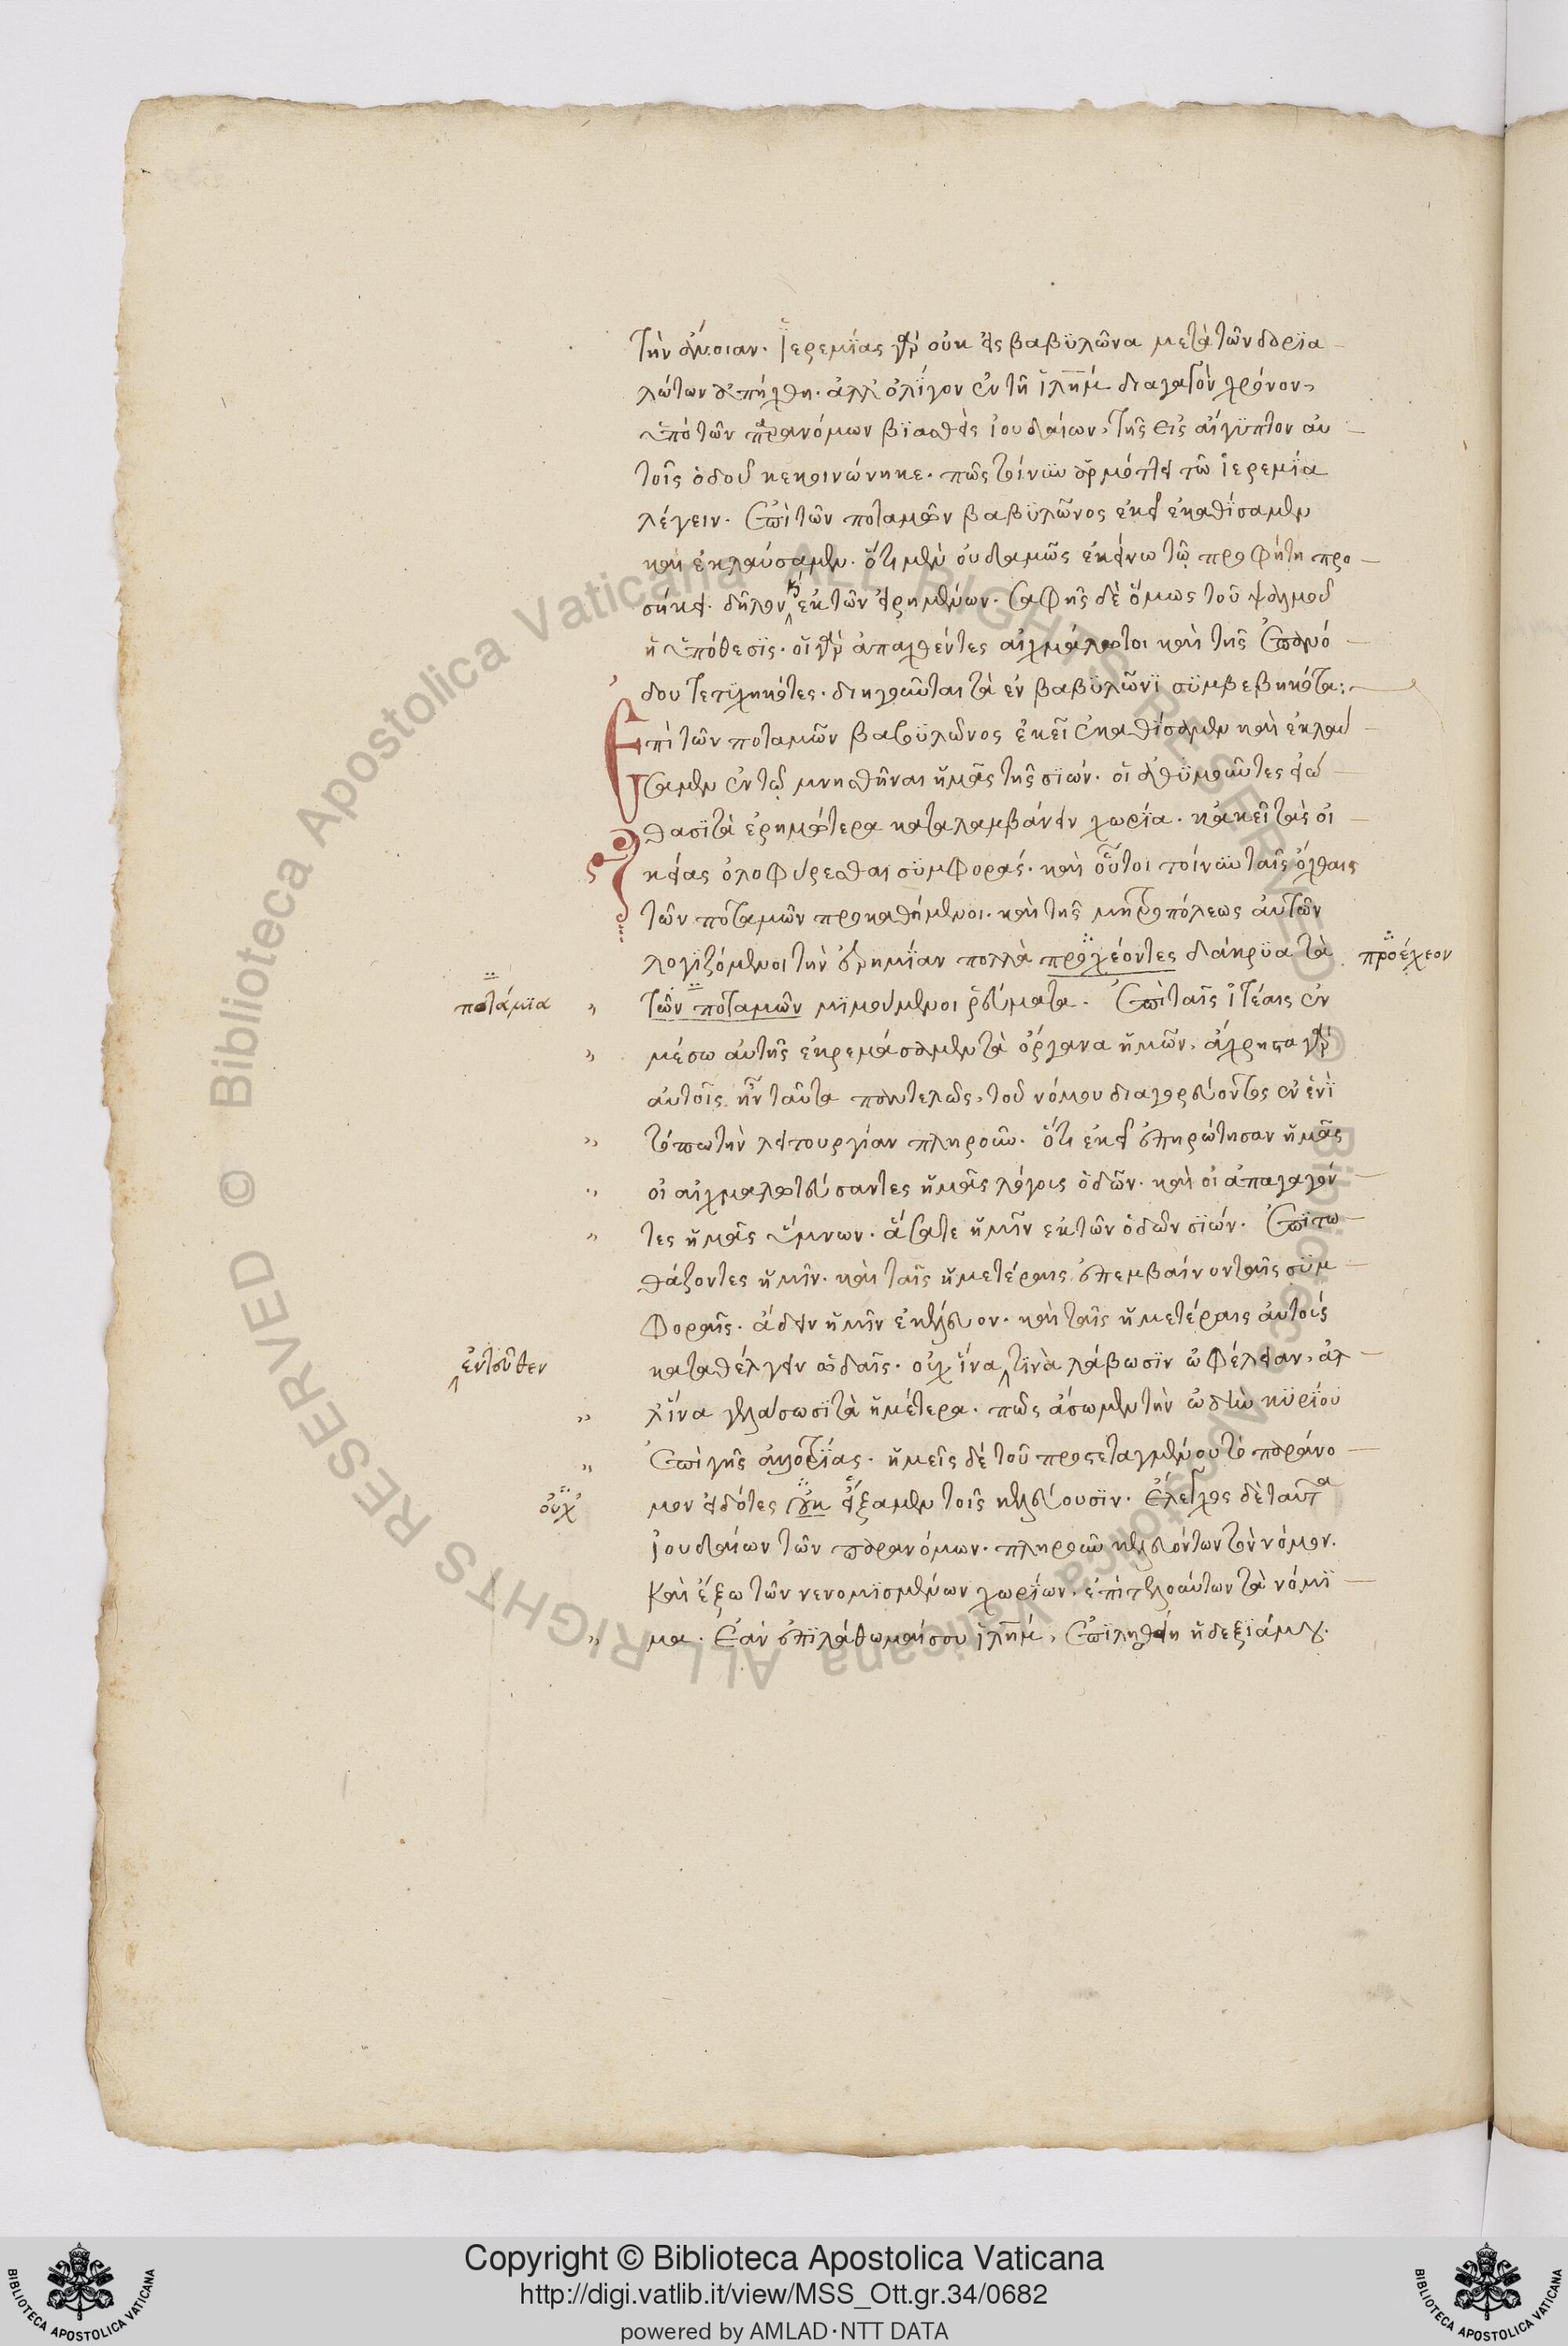 τὴν ἄνοιαν. Ἱερεμίας γὰρ οὐκ εἰς βαβϋλῶνα μετὰ τῶν δορϊα
λώτων ἀπήχθη. ἀλλ' ὀλίγον ἐν τῆ ἱλημ διαγαγὼν χρόνον,
ὑπὸ τῶν παρανόμων βϊασθεὶς ἰουδαίων, τῆς εἰς αἴγϋπτον αὐ
τοῖς ὁδοῦ κεκοινώνηκε. πῶς τοίνυν ἁρμόττει τῶ ἱερεμία
λέγειν. Ἐπὶ τῶν ποταμῶν βαβϋλῶνος ἐκεῖ ἐκαθίσαμεν
καὶ ἐκλαύσαμεν. ὅτι μὲν οὐδαμῶς ἐκείνω τῶ προφήτη προ
σήκει. δῆλον καὶ ἐκ τῶν εἰρημένων. σαφὴς δὲ ὅμως τοῦ ψαλμοῦ
ἡ ὑπόθεσϊς. οἱ γὰρ ἀπαχθέντες αἰχμάλωτοι καὶ τῆς ἐπανό
δου τετυχηκότες. διηγοῦνται τὰ ἐν βαβϋλῶνϊ σϋμβεβηκότα:
Ἐπὶ τῶν ποταμῶν βαβϋλῶνος ἐκεῖ ἐκαθίσαμεν καὶ ἐκλαύ
σαμεν ἐν τῶ μνησθῆναι ἡμᾶς τῆς σϊών. οἱ ἀθϋμοῦντες εἰώ
θασϊ τὰ ἐρημότερα καταλαμβάνειν χωρία. κἀκεῖ τὰς οἰ
κείας ὀλοφύρεσθαι σϋμφοράς. καὶ οὗτοι τοίνυν ταῖς ὄχθαις
τῶν ποταμῶν προκαθήμενοι. καὶ τῆς μητροπόλεως αὐτῶν
λογιζόμενοι τὴν ἐρημϊαν πολλὰ προχέοντες δάκρϋα τὰ προέχεον
ποτάμια " τῶν ποταμῶν μϊμούμενοι ῥεύματα. Ἐπὶ ταῖς ἰτέαις ἐν
" μέσω αὐτῆς ἐκρεμάσαμεν τὰ ὄργανα ἡμῶν. ἄχρηστα γὰρ
αὐτοῖς ἦν ταῦτα παντελῶς, τοῦ νόμου διαγορεύοντος ἐν ἑνϊ
" τόπω τὴν λειτουργίαν πληροῦν. ὅτι ἐκεῖ ἐπηρώτησαν ἡμᾶς
" οἱ αἰχμαλωτεύσαντες ἡμᾶς λόγους ὠδῶν. καὶ οἱ ἀπαγαγόν
" τες ἡμᾶς ὕμνον. ἄσατε ἡμῖν ἐκ τῶν ὠδῶν σϊών. Ἐπϊτω
θάζοντες ἡμῖν. καὶ ταῖς ἡμετέραις ἐπεμβαίνοντες σϋμ
φοραῖς. ἄδειν ἡμῖν ἐκέλευον. καὶ ταῖς ἡμετέραις αὐτοὺς
ἐντεῦθεν καταθέλγειν ὠδαῖς. οὐχ ἵνα τϊνὰ λάβωσϊν ὠφέλειαν, ἀλ
" λ' ἵνα γελάσωσϊ τὰ ἡμέτερα. πῶς ἄσωμεν τὴν ὠδὴν κϋρΐου
" Ἐπὶ γῆς ἀλλοτρΐας. ἡμεῖς δὲ τοῦ προστεταγμένου τὸ παράνο
οὐχ μον εἰδότες οὐκ εἴξαμεν τοῖς κελεύουσϊν. Ἔλεγχος δὲ ταῦτα
ἰουδαίων τῶν παρανόμων. πληροῦν κελευόντων τὸν νόμον.
Καὶ ἔξω τῶν νενομϊσμένων χωρίων. ἐπιτελούντων τὰ νόμϊ
" μα. Ἐὰν ἐπιλάθωμαί σου ἱλημ, ἐπιλησθείη ἡ δεξϊά μου.
Copyright © Biblioteca Apostolica Vaticana
http://digi.vatlib.it/view/MSS_Ott.gr.34/0682
powered by AMLAD·NTT DATA